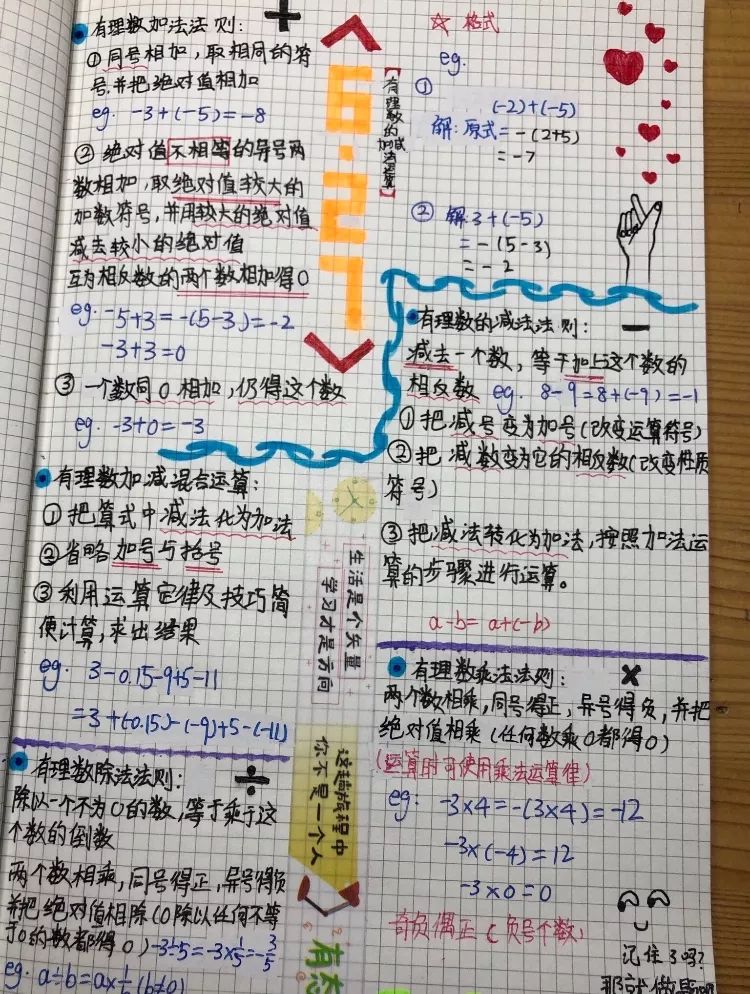 有理数加法法则:
①同号相加,取相同的符
号,并把绝对值相加
eg. -3+(-5)=-8
②绝对值不相等的异号两
数相加,取绝对值较大的
加数符号,并用较大的绝对值
减去较小的绝对值
互为相反数的两个数相加得0
eg. -5+3=-(5-3)=-2
-3+3=0
③一个数同0相加,仍得这个数
eg. -3+0=-3
+
6.27
【有理数的
加减法运算】
☆ 格式
eg.
①
(-2)+(-5)
解:原式=-(2+5)
=-7
② 解:3+(-5)
=-(5-3)
=-2
有理数的减法法则:
减去一个数,等于加上这个数的
相反数 eg. 8-9=8+(-9)=-1
①把减号变为加号(改变运算符号)
②把减数变为它的相反数(改变性质
符号)
③把减法转化为加法,按照加法运
算的步骤进行运算。
a-b=a+(-b)
有理数加减混合运算:
①把算式中减法化为加法
②省略加号与括号
③利用运算定律及技巧简
便计算,求出结果
eg. 3-0.15-9+5-11
=3+(-0.15)-(-9)+5-(-11)
生活是个矢量
学习才是方向
有理数乘法法则: ×
两个数相乘,同号得正,异号得负,并把
绝对值相乘(任何数乘0都得0)
(运算时可使用乘法运算律)
eg: -3×4=-(3×4)=-12
-3×(-4)=12
-3×0=0
奇负偶正(负号个数)
记住了吗?
有理数除法法则: ÷
除以一个不为0的数,等于乘于这
个数的倒数
两个数相乘,同号得正,异号得负
并把绝对值相除(0除以任何不等
于0的数都得0) -3÷5=-3×1/5=-3/5
eg. a÷b=a×1/b(b≠0)
这趟旅程中
你不是一个人
有态